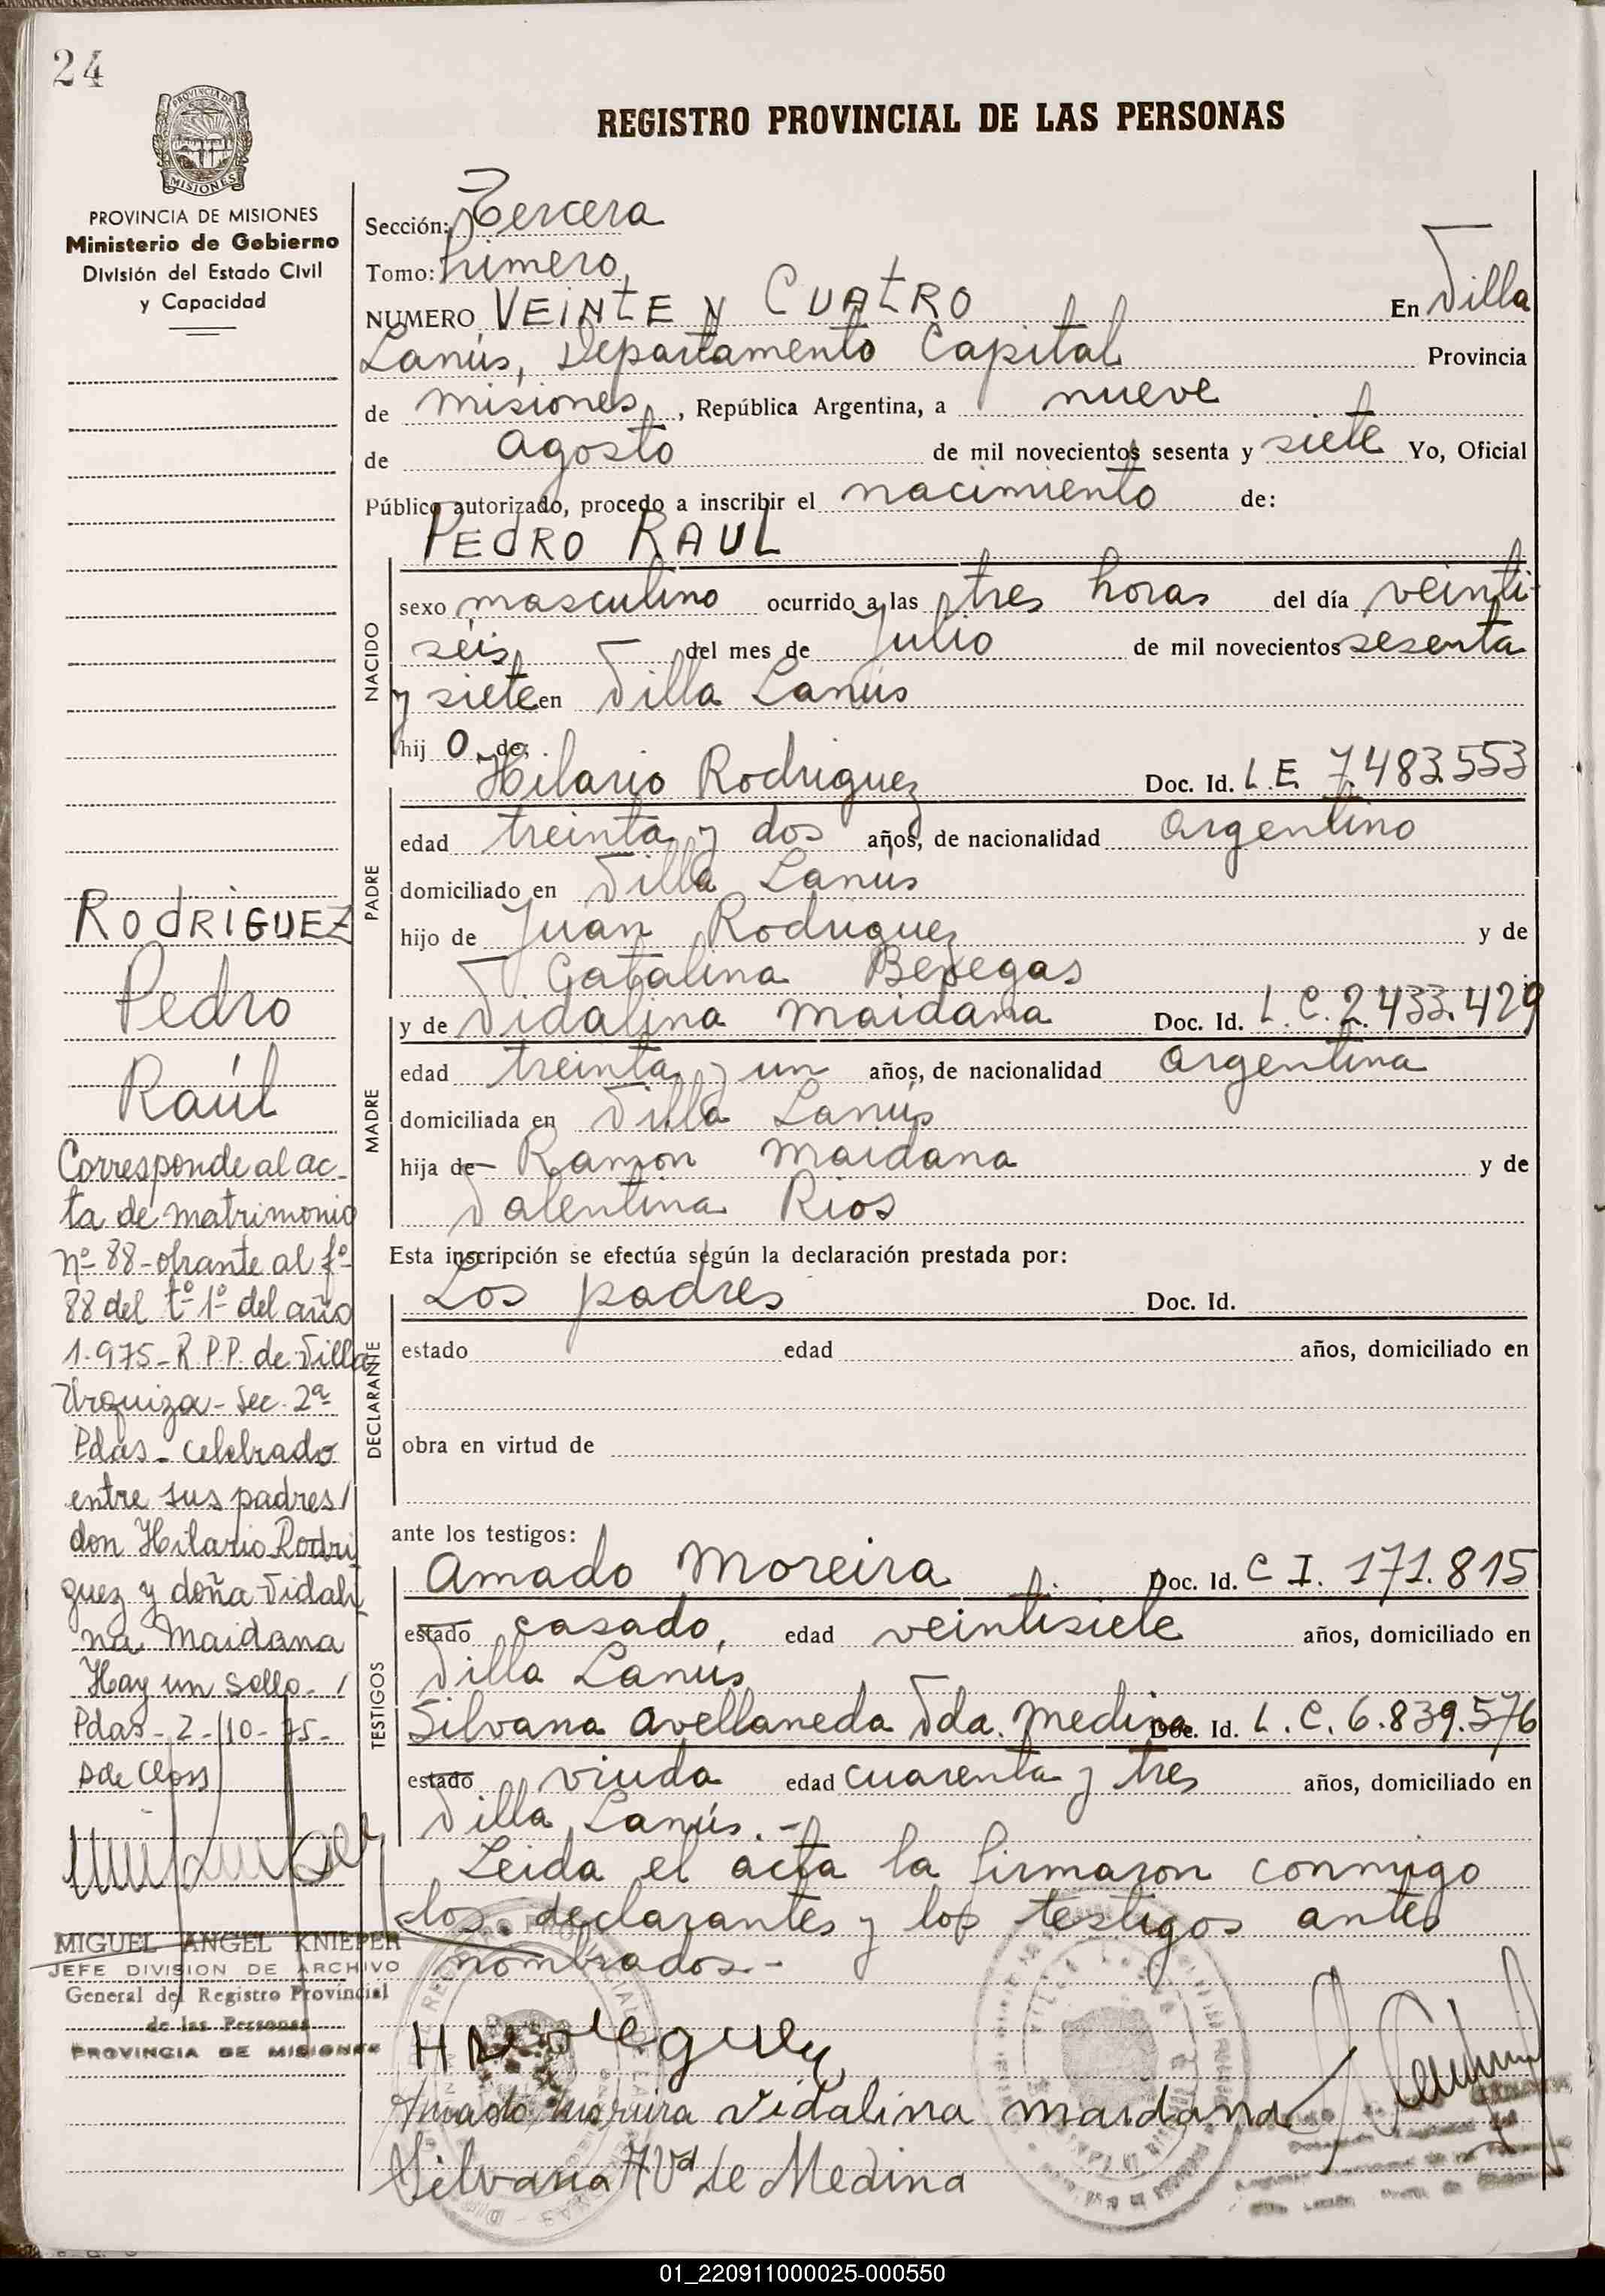 24
PROVINCIA DE
MISIONES
PROVINCIA DE MISIONES
Ministerio de Gobierno
División del Estado Civil
y Capacidad
REGISTRO PROVINCIAL DE LAS PERSONAS
Sección: Tercera
Tomo: Primero
NUMERO VEINTE Y CUATRO En Villa
Lanús, Departamento Capital Provincia
de Misiones, República Argentina, a nueve
de agosto de mil novecientos sesenta y siete Yo, Oficial
Público autorizado, procedo a inscribir el nacimiento de:
PEDRO RAUL
NACIDO
sexo masculino ocurrido a las tres horas del día veinti-
séis del mes de Julio de mil novecientos sesenta
y siete en Villa Lanús
hijo de:
PADRE
Hilario Rodriguez Doc. Id. L.E. 7.483.553
edad treinta y dos años, de nacionalidad argentino
domiciliado en Villa Lanus
hijo de Juan Rodriguez y de
Catalina Benegas
MADRE
y de Vidalina Maidana Doc. Id. L.C. 2.433.429
edad treinta y un años, de nacionalidad argentina
domiciliada en Villa Lanús
hija de Ramon Maidana y de
Valentina Rios
Esta inscripción se efectúa según la declaración prestada por:
DECLARANTE
Los padres Doc. Id.
estado edad años, domiciliado en
obra en virtud de
ante los testigos:
TESTIGOS
Amado Moreira Doc. Id. C I. 171.815
estado casado, edad veintisiete años, domiciliado en
Villa Lanús
Silvana Avellaneda Vda. Medina Doc. Id. L.C. 6.839.576
estado viuda edad cuarenta y tres años, domiciliado en
Villa Lanús.-
Leida el acta la firmaron conmigo
los declarantes y los testigos antes
nombrados.-
Vidalina Maidana
Silvana A Vd de Medina
RODRIGUEZ
Pedro
Raúl
Corresponde al ac-
ta de matrimonio
nº 88-obrante al fº
88 del tº 1º del año
1.975-R.P.P. de Villa
Urquiza-Sec. 2ª
Pdas- celebrado
entre sus padres/
don Hilario Rodri
guez y doña Vidali
na Maidana
Hay un sello-/
Pdas-2-/10-75-
MIGUEL ANGEL KNIEPER
JEFE DIVISION DE ARCHIVO
General del Registro Provincial
de las Personas
PROVINCIA DE MISIONES
01_220911000025-000550